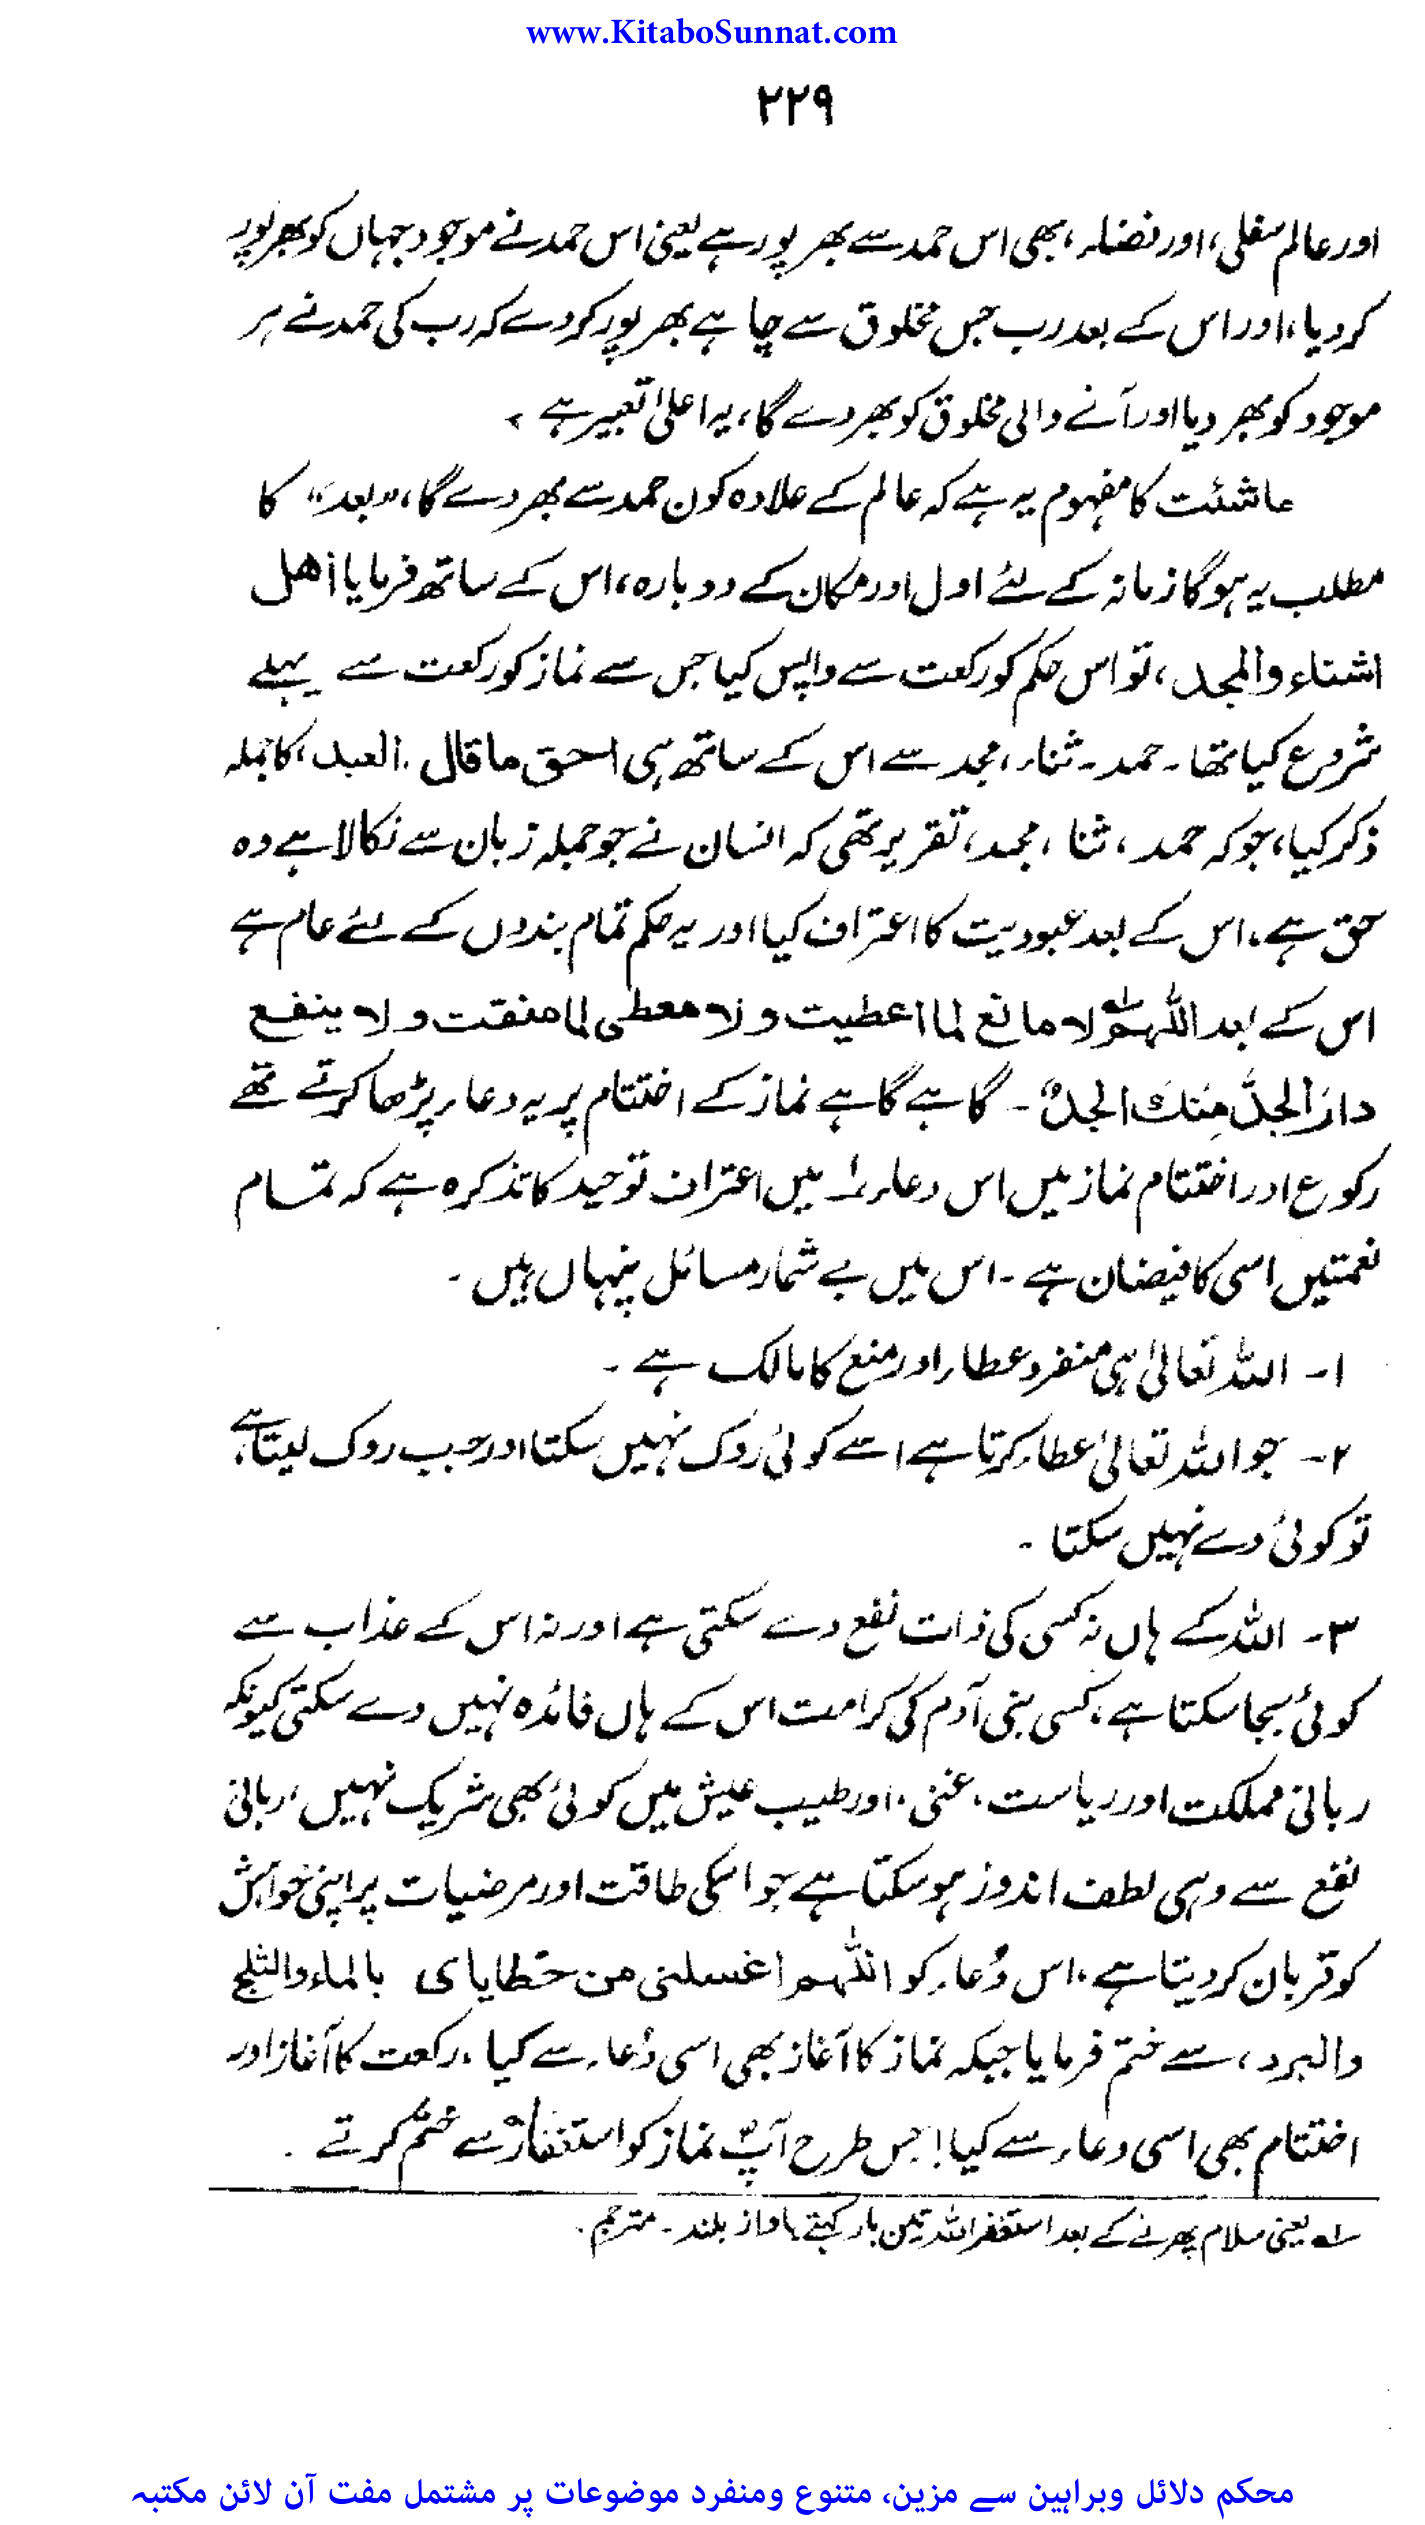 www.KitaboSunnat.com
۲۲۹
اور عالم سفلی، اور فضاء، بھی اس حمد سے بھرپور ہے یعنی اس حمد نے موجود جہاں کو بھرپور
کر دیا، اور اس کے بعد رب جس مخلوق سے چاہے بھرپور کر دے کہ رب کی حمد نے ہر
موجود کو بھر دیا اور آنے والی مخلوق کو بھر دے گا، یہ اعلیٰ تعبیر ہے ۔
ماشئت کا مفہوم یہ ہے کہ عالم کے علاوہ کون حمد سے بھر دے گا، "بعد" کا
مطلب یہ ہوگا زمانہ کے لئے اول اور مکان کے دوبارہ، اس کے ساتھ فرمایا أهل
اشناء والمجد، تو اس حکم کو رکعت سے واپس کیا جس سے نماز کو رکعت سے پہلے
شروع کیا تھا ۔ حمد ۔ ثناء، مجد سے اس کے ساتھ ہی احق ما قال العبد، کا جملہ
ذکر کیا، جو کہ حمد، ثنا، مجد، تقریر تھی کہ انسان نے جو جملہ زبان سے نکالا ہے وہ
حق ہے، اس کے بعد عبودیت کا اعتراف کیا اور یہ حکم تمام بندوں کے لئے عام ہے
اس کے بعد اللہم لا مانع لما اعطیت ولا معطی لما منقت ولا ینفع
دارَ الجدِّ مِنكَ الجدُ ۔ گاہے گاہے نماز کے اختتام پر یہ دعاء پڑھا کرتے تھے
رکوع اور اختتام نماز میں اس دعاء میں اعتراف توحید کا تذکرہ ہے کہ تمام
نعمتیں اسی کا فیضان ہے ۔ اس میں بے شمار مسائل پنہاں ہیں ۔
۱۔ اللہ تعالیٰ ہی منفرد عطاء اور منع کا مالک ہے ۔
۲۔ جو اللہ تعالیٰ عطاء کرتا ہے اسے کوئی روک نہیں سکتا اور جب روک لیتا ہے،
تو کوئی دے نہیں سکتا ۔
۳۔ اللہ کے ہاں نہ کسی کی ذات نفع دے سکتی ہے اور نہ اس کے عذاب سے
کوئی بچا سکتا ہے، کسی بنی آدم کی کرامت اس کے ہاں فائدہ نہیں دے سکتی کیونکہ
ربانی مملکت اور ریاست، غنی، اور طیب عیش میں کوئی بھی شریک نہیں، ربانی
نفع سے وہی لطف اندوز ہو سکتا ہے جو اسکی طاقت اور مرضیات پر اپنی خواہش
کو قربان کر دیتا ہے، اس دُعاء کو اللہم اغسلنی من خطایای بالماء والثلج
والبرد، سے ختم فرمایا جبکہ نماز کا آغاز بھی اسی دُعاء سے کیا، رکعت کا آغاز اور
اختتام بھی اسی دعاء سے کیا! جس طرح آپؐ نماز کو استغفار سے ختم کرتے ۔
لہ یعنی سلام پھرنے کے بعد استغفر اللہ تین بار کہتے باواز بلند ۔ مترجم ۔
محکم دلائل وبراہین سے مزین، متنوع ومنفرد موضوعات پر مشتمل مفت آن لائن مکتبہ